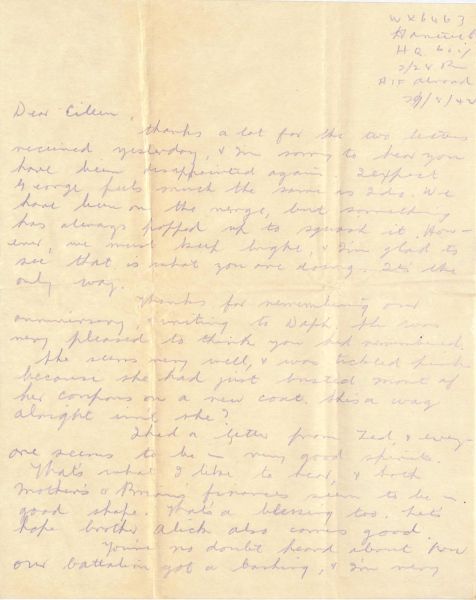 WX6463
HQ Coy
2/28 Bn
AIF Abroad
29/8/42
Dear Eileen,
thanks a lot for the two letters
received yesterday, & I'm sorry to hear you
have been disappointed again. I expect
George feels much the same as I do. We
have been on the verge, but something
has always popped up to squash it. How-
ever, we must keep bright, & I'm glad to
see that is what you are doing. It's the
only way.
Thanks for remembering our
anniversary, writing to Daph. She was
very pleased to think you had remembered.
She seems very well, & was tickled pink
because she had just busted most of
her coupons on a new coat. She's a wag
alright isn't she?
I had a letter from Ted, & every-
one seems to be in very good spirits.
That's what I like to hear, & both
Mother's & finances seem to be in
good shape. That's a blessing too. Let's
hope brother Alick also comes good.
You've no doubt heard about how
our battalion got a bashing, & I'm very